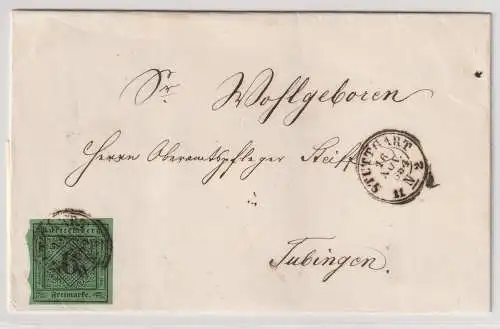 Sr. Wohlgeboren
Herrn Oberamtspfleger Steiff
in
Tubingen.
STUTTGART
16
NOV
Württemberg
6
Freimarke.